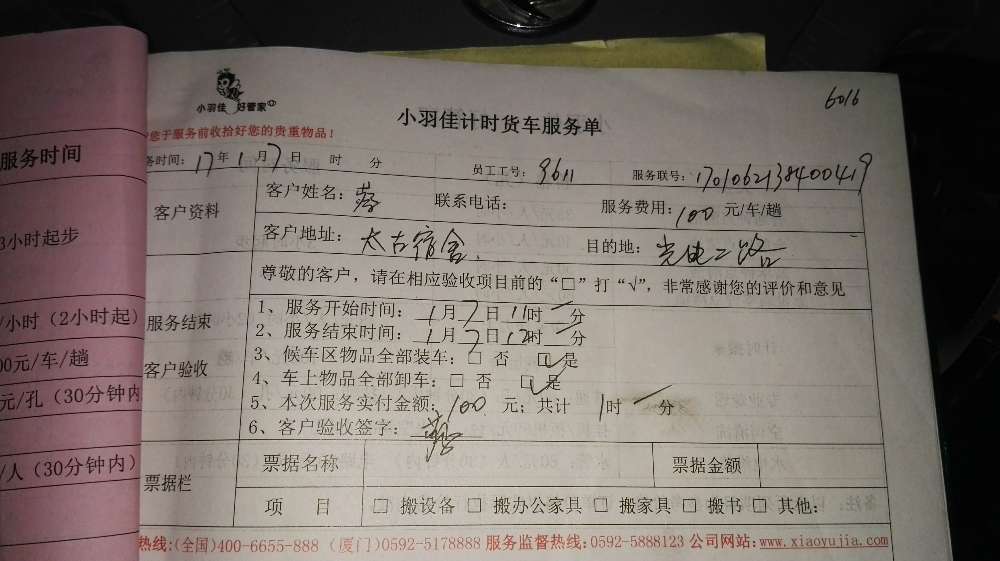 6016
小羽佳 好管家
小羽佳计时货车服务单
您于服务前收拾好您的贵重物品！
务时间：17年1月7日 时 分 员工工号：9611 服务联号：1701062138400419
客户资料
客户姓名：蔡 联系电话： 服务费用：100元/车/趟
客户地址：太古宿舍 目的地：光电二路
尊敬的客户，请在相应验收项目前的“□”打“√”，非常感谢您的评价和意见
服务结束
客户验收
1、服务开始时间：1月7日11时 分
2、服务结束时间：1月7日12时 分
3、候车区物品全部装车：□ 否 □√是
4、车上物品全部卸车：□ 否 □√是
5、本次服务实付金额：100 元；共计 1时 分
6、客户验收签字：蔡
票据栏
票据名称 票据金额
项 目 □ 搬设备 □ 搬办公家具 □ 搬家具 □ 搬书 □ 其他：
热线：(全国)400-6655-888 (厦门)0592-5178888 服务监督热线：0592-5888123 公司网站：www.xiaoyujia.com
服务时间
3小时起步
/小时（2小时起）
00元/车/趟
元/孔（30分钟内
/人（30分钟内）